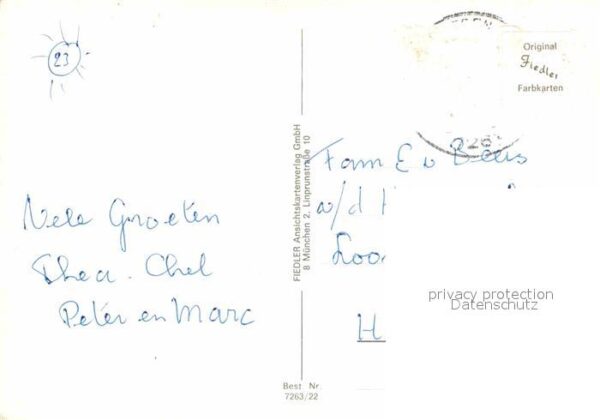 23
Vele Groeten
Thea - Chel
Peter en Marc
FIEDLER Ansichtskartenverlag GmbH
8 München 2, Linprunstraße 10
Best Nr.
7263/22
Original
Fiedler
Farbkarten
Fam E v Beers
v/d
Loo
H
privacy protection
Datenschutz